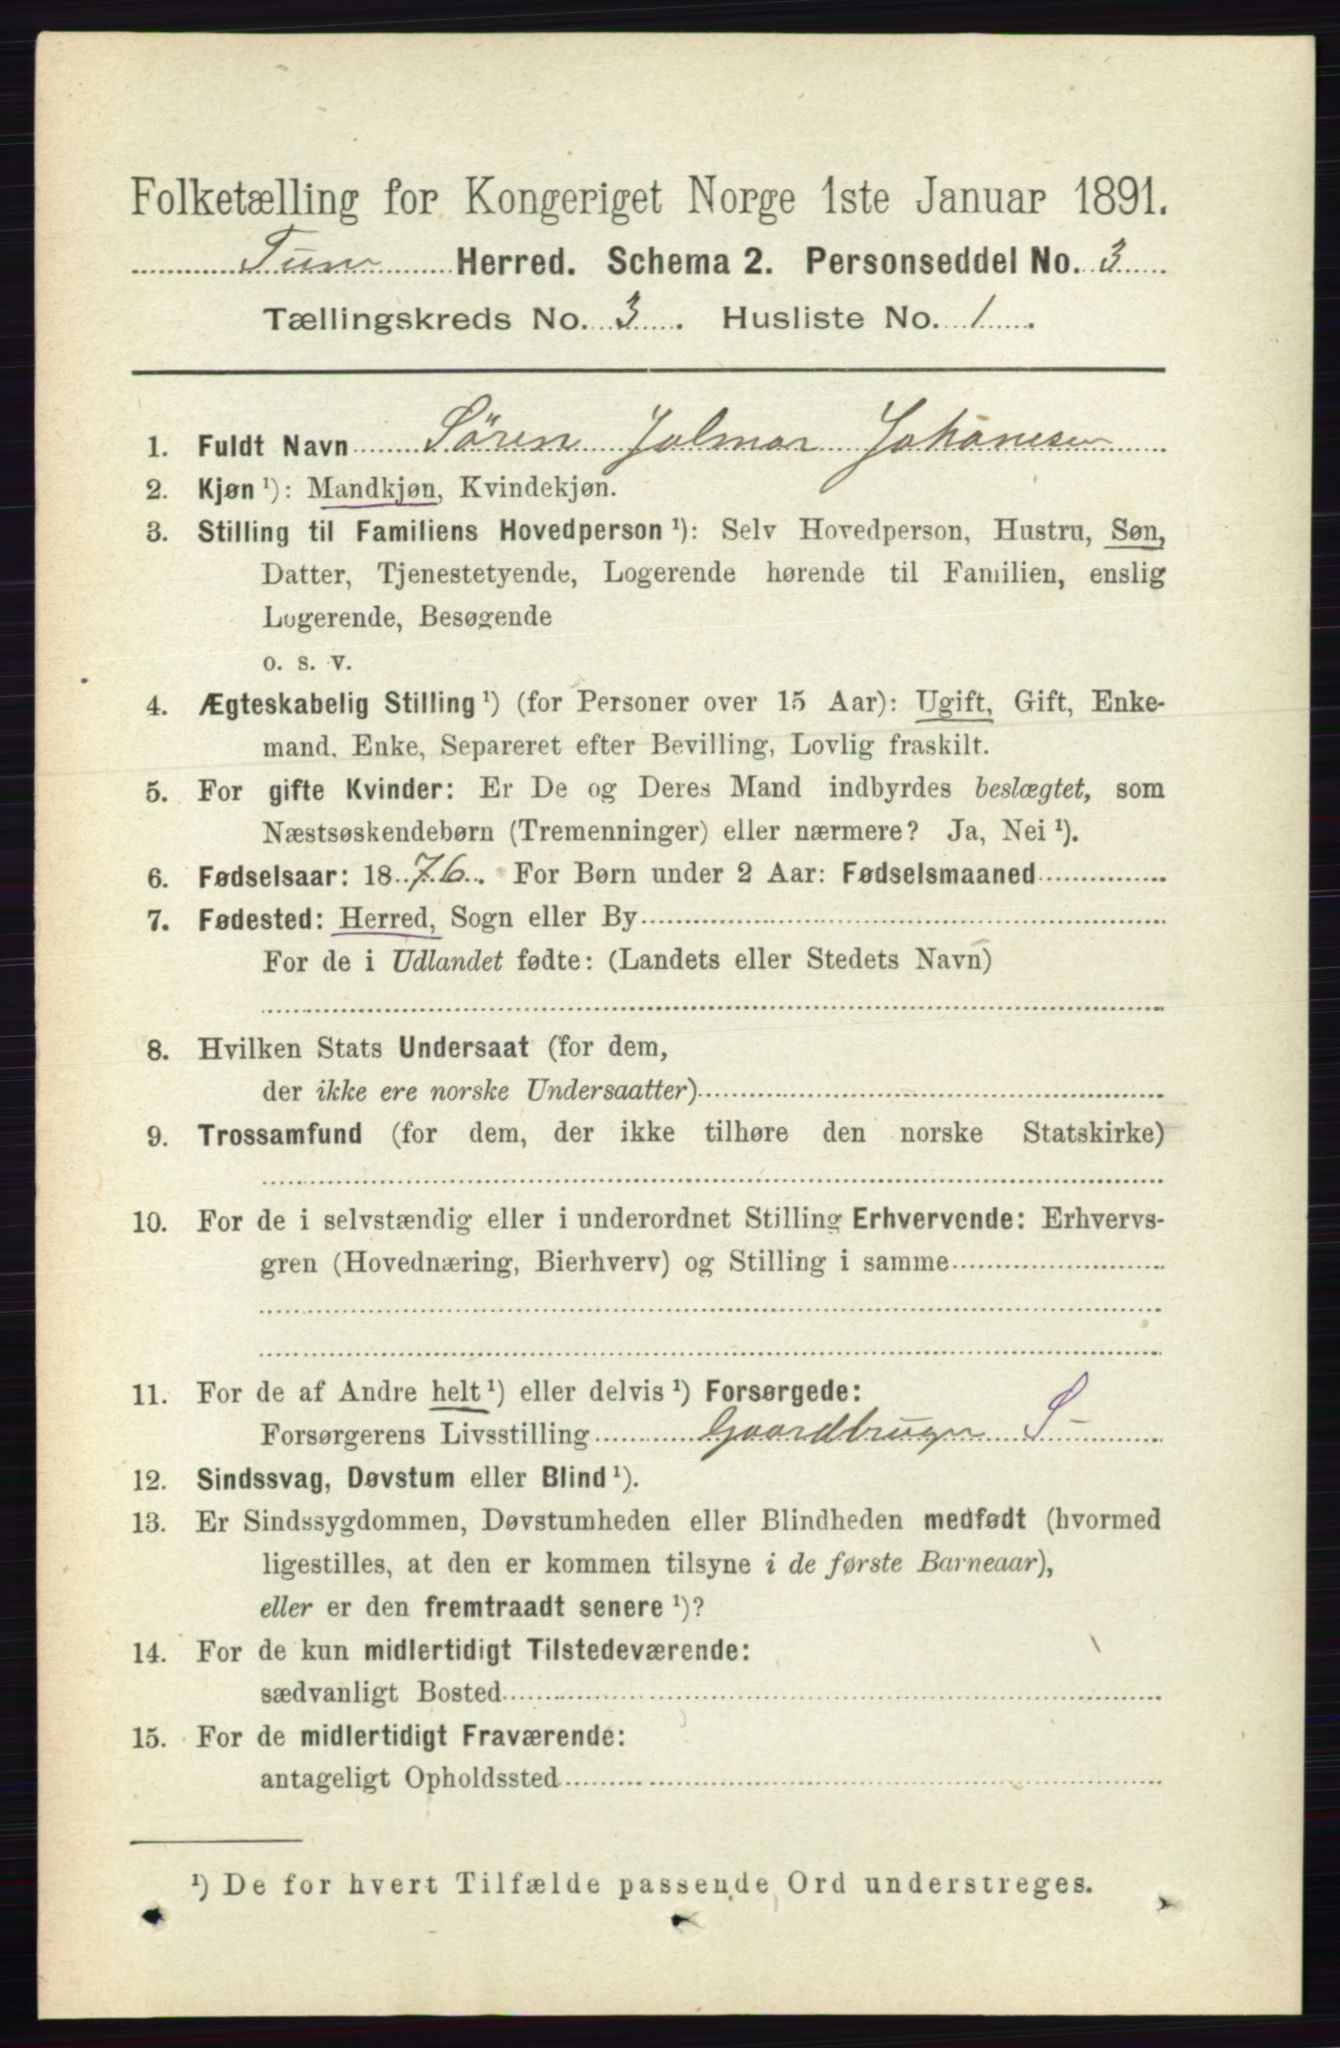 Folketælling for Kongeriget Norge 1ste Januar 1891.
Tune Herred. Schema 2. Personseddel No. 3
Tællingskreds No. 3. Husliste No. 1.
1. Fuldt Navn Sören Jalmar Johanesen
2. Kjøn ¹): Mandkjøn, Kvindekjøn.
3. Stilling til Familiens Hovedperson ¹): Selv Hovedperson, Hustru, Søn,
Datter, Tjenestetyende, Logerende hørende til Familien, enslig
Logerende, Besøgende
o. s. v.
4. Ægteskabelig Stilling ¹) (for Personer over 15 Aar): Ugift, Gift, Enke-
mand, Enke, Separeret efter Bevilling, Lovlig fraskilt.
5. For gifte Kvinder: Er De og Deres Mand indbyrdes beslægtet, som
Næstsøskendebørn (Tremenninger) eller nærmere? Ja, Nei ¹).
6. Fødselsaar: 1876. For Børn under 2 Aar: Fødselsmaaned
7. Fødested: Herred, Sogn eller By
For de i Udlandet fødte: (Landets eller Stedets Navn)
8. Hvilken Stats Undersaat (for dem,
der ikke ere norske Undersaatter)
9. Trossamfund (for dem, der ikke tilhøre den norske Statskirke)
10. For de i selvstændig eller i underordnet Stilling Erhvervende: Erhvervs-
gren (Hovednæring, Bierhverv) og Stilling i samme
11. For de af Andre helt ¹) eller delvis ¹) Forsørgede:
Forsørgerens Livsstilling Gaardbruger S
12. Sindssvag, Døvstum eller Blind ¹).
13. Er Sindssygdommen, Døvstumheden eller Blindheden medfødt (hvormed
ligestilles, at den er kommen tilsyne i de første Barneaar),
eller er den fremtraadt senere ¹)?
14. For de kun midlertidigt Tilstedeværende:
sædvanligt Bosted
15. For de midlertidigt Fraværende:
antageligt Opholdssted
¹) De for hvert Tilfælde passende Ord understreges.